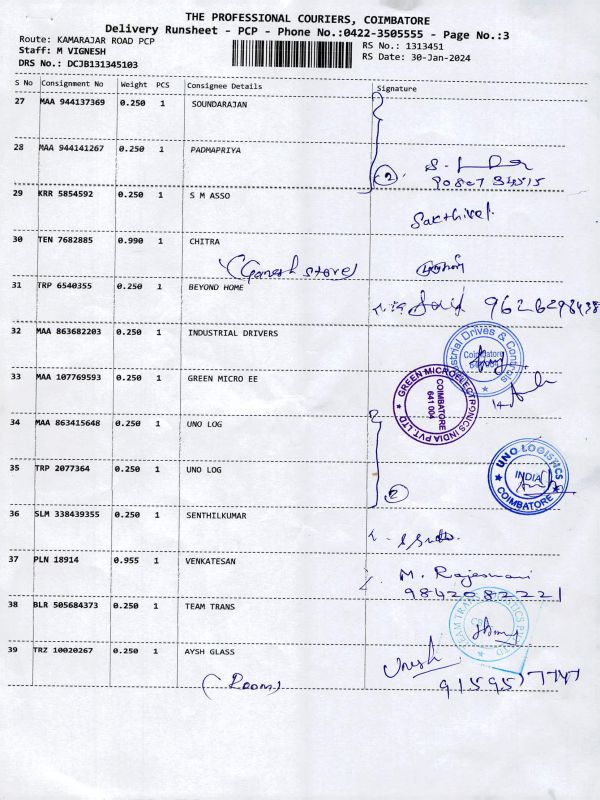 THE PROFESSIONAL COURIERS, COIMBATORE
Delivery Runsheet - PCP - Phone No.:0422-3505555 - Page No.:3
Route: KAMARAJAR ROAD PCP
RS No.: 1313451
Staff: M VIGNESH
RS Date: 30-Jan-2024
DRS No.: DCJB131345103
S No Consignment No Weight PCS Consignee Details Signature
27 MAA 944137369 0.250 1 SOUNDARAJAN
28 MAA 944141267 0.250 1 PADMAPRIYA
(2)
29 KRR 5854592 0.250 1 S M ASSO
Sakthivel
30 TEN 7682885 0.990 1 CHITRA
(Ganesh store)
31 TRP 6540355 0.250 1 BEYOND HOME
9626298438
32 MAA 863682203 0.250 1 INDUSTRIAL DRIVERS
Industrial Drives & Controls
Coimbatore
33 MAA 107769593 0.250 1 GREEN MICRO EE
GREEN MICROELECTRONICS INDIA PVT LTD
COIMBATORE
641 004
34 MAA 863415648 0.250 1 UNO LOG
35 TRP 2077364 0.250 1 UNO LOG
(2)
UNO LOGISTICS
INDIA
COIMBATORE
36 SLM 338439355 0.250 1 SENTHILKUMAR
37 PLN 18914 0.955 1 VENKATESAN
M. Rajeswari
9842082221
38 BLR 505684373 0.250 1 TEAM TRANS
39 TRZ 10020267 0.250 1 AYSH GLASS
(Room)
9159577747